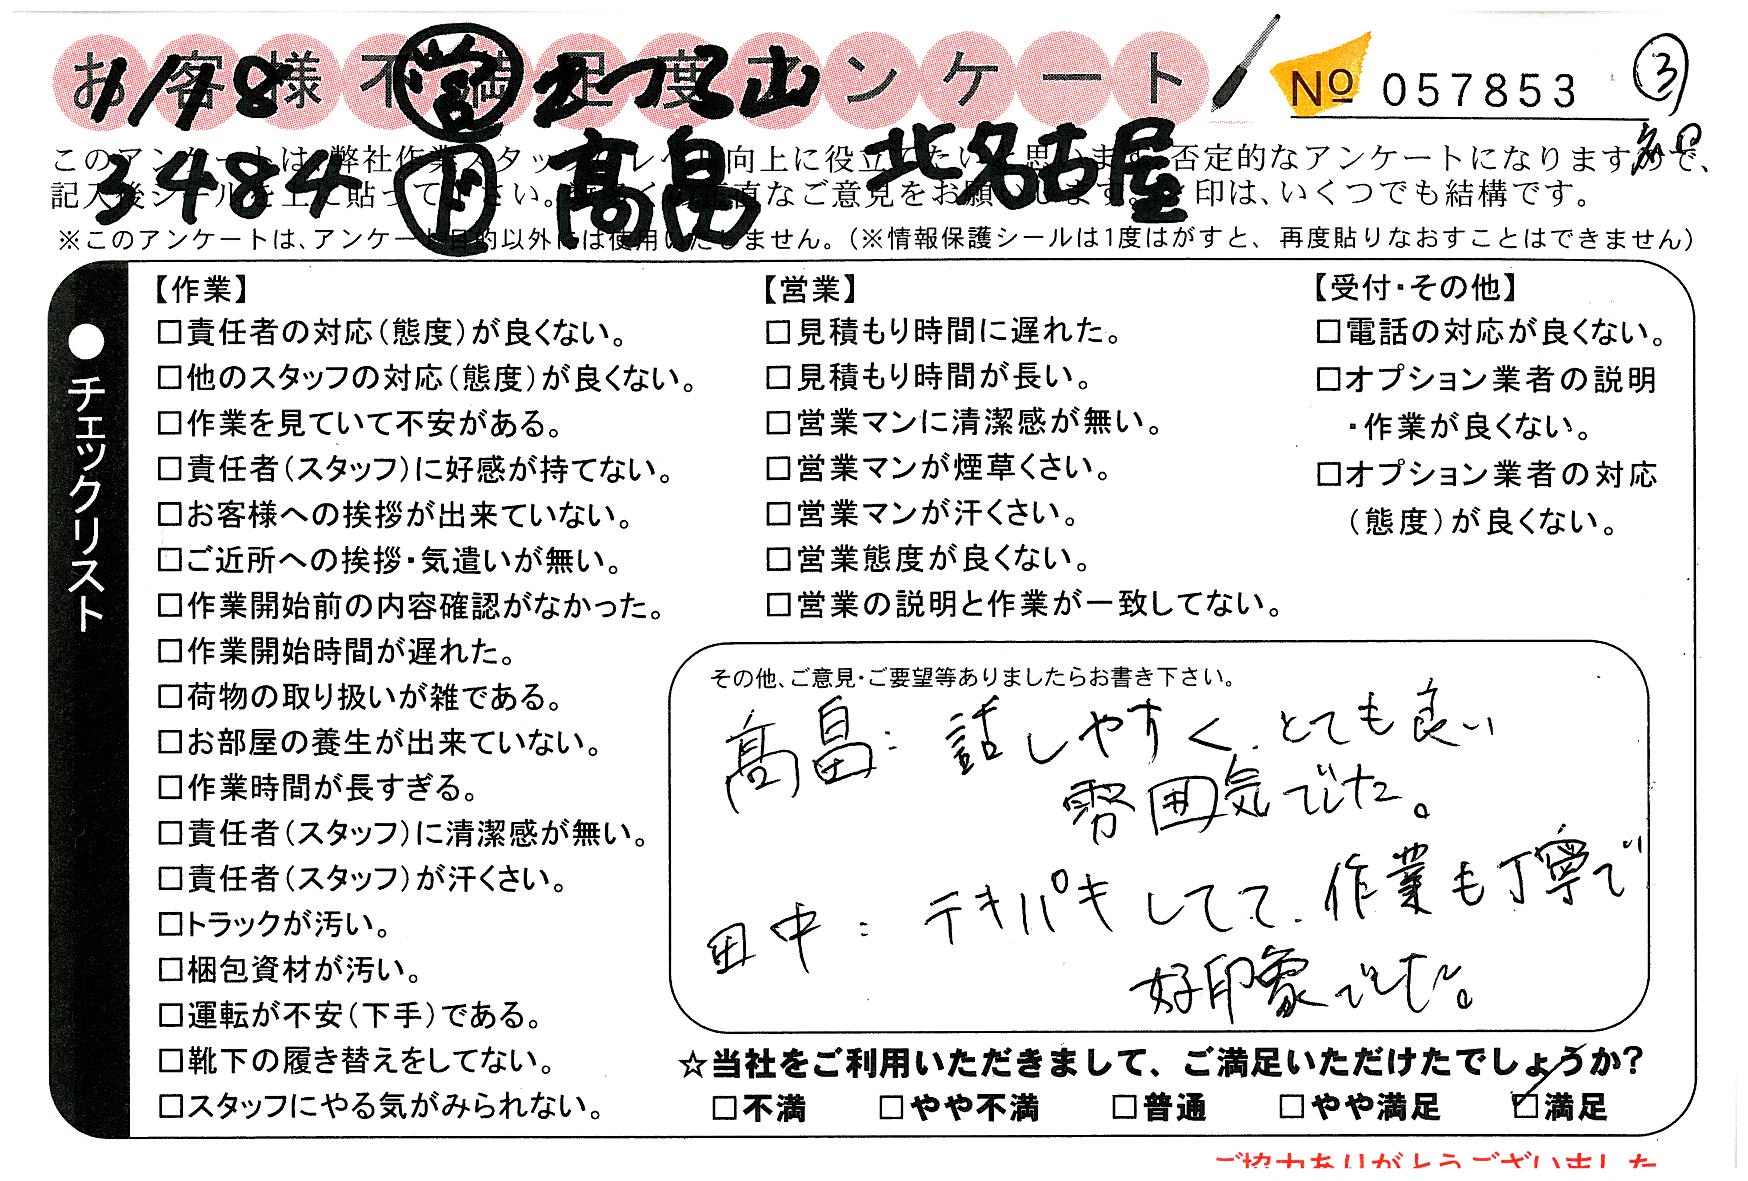 お客様不満足度アンケート
No 057853
③
1/18 営 まつ山
3484 下 髙畠 北名古屋
このアンケートは、弊社作業スタッフのレベル向上に役立てたいと思います。否定的なアンケートになりますので、
記入後シールを上に貼って下さい。数多くの正直なご意見をお願いします。レ印は、いくつでも結構です。
※このアンケートは、アンケート目的以外には使用いたしません。（※情報保護シールは1度はがすと、再度貼りなおすことはできません）
●チェックリスト
【作業】
□責任者の対応（態度）が良くない。
□他のスタッフの対応（態度）が良くない。
□作業を見ていて不安がある。
□責任者（スタッフ）に好感が持てない。
□お客様への挨拶が出来ていない。
□ご近所への挨拶・気遣いが無い。
□作業開始前の内容確認がなかった。
□作業開始時間が遅れた。
□荷物の取り扱いが雑である。
□お部屋の養生が出来ていない。
□作業時間が長すぎる。
□責任者（スタッフ）に清潔感が無い。
□責任者（スタッフ）が汗くさい。
□トラックが汚い。
□梱包資材が汚い。
□運転が不安（下手）である。
□靴下の履き替えをしてない。
□スタッフにやる気がみられない。
【営業】
□見積もり時間に遅れた。
□見積もり時間が長い。
□営業マンに清潔感が無い。
□営業マンが煙草くさい。
□営業マンが汗くさい。
□営業態度が良くない。
□営業の説明と作業が一致してない。
【受付・その他】
□電話の対応が良くない。
□オプション業者の説明
・作業が良くない。
□オプション業者の対応
（態度）が良くない。
その他、ご意見・ご要望等ありましたらお書き下さい。
髙畠：話しやすく、とても良い
雰囲気でした。
田中：テキパキしてて、作業も丁寧で
好印象でした。
☆当社をご利用いただきまして、ご満足いただけたでしょうか?
□不満 □やや不満 □普通 □やや満足 ☑満足
ご協力ありがとうございました